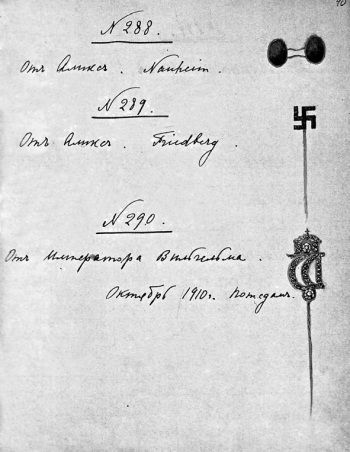 N 288.
Отъ Аликсъ. Nauheim.
N 289.
Отъ Аликсъ. Friedberg.
N 290.
Отъ Императора Вильгельма.
Октябрь 1910 г. Потсдамъ.